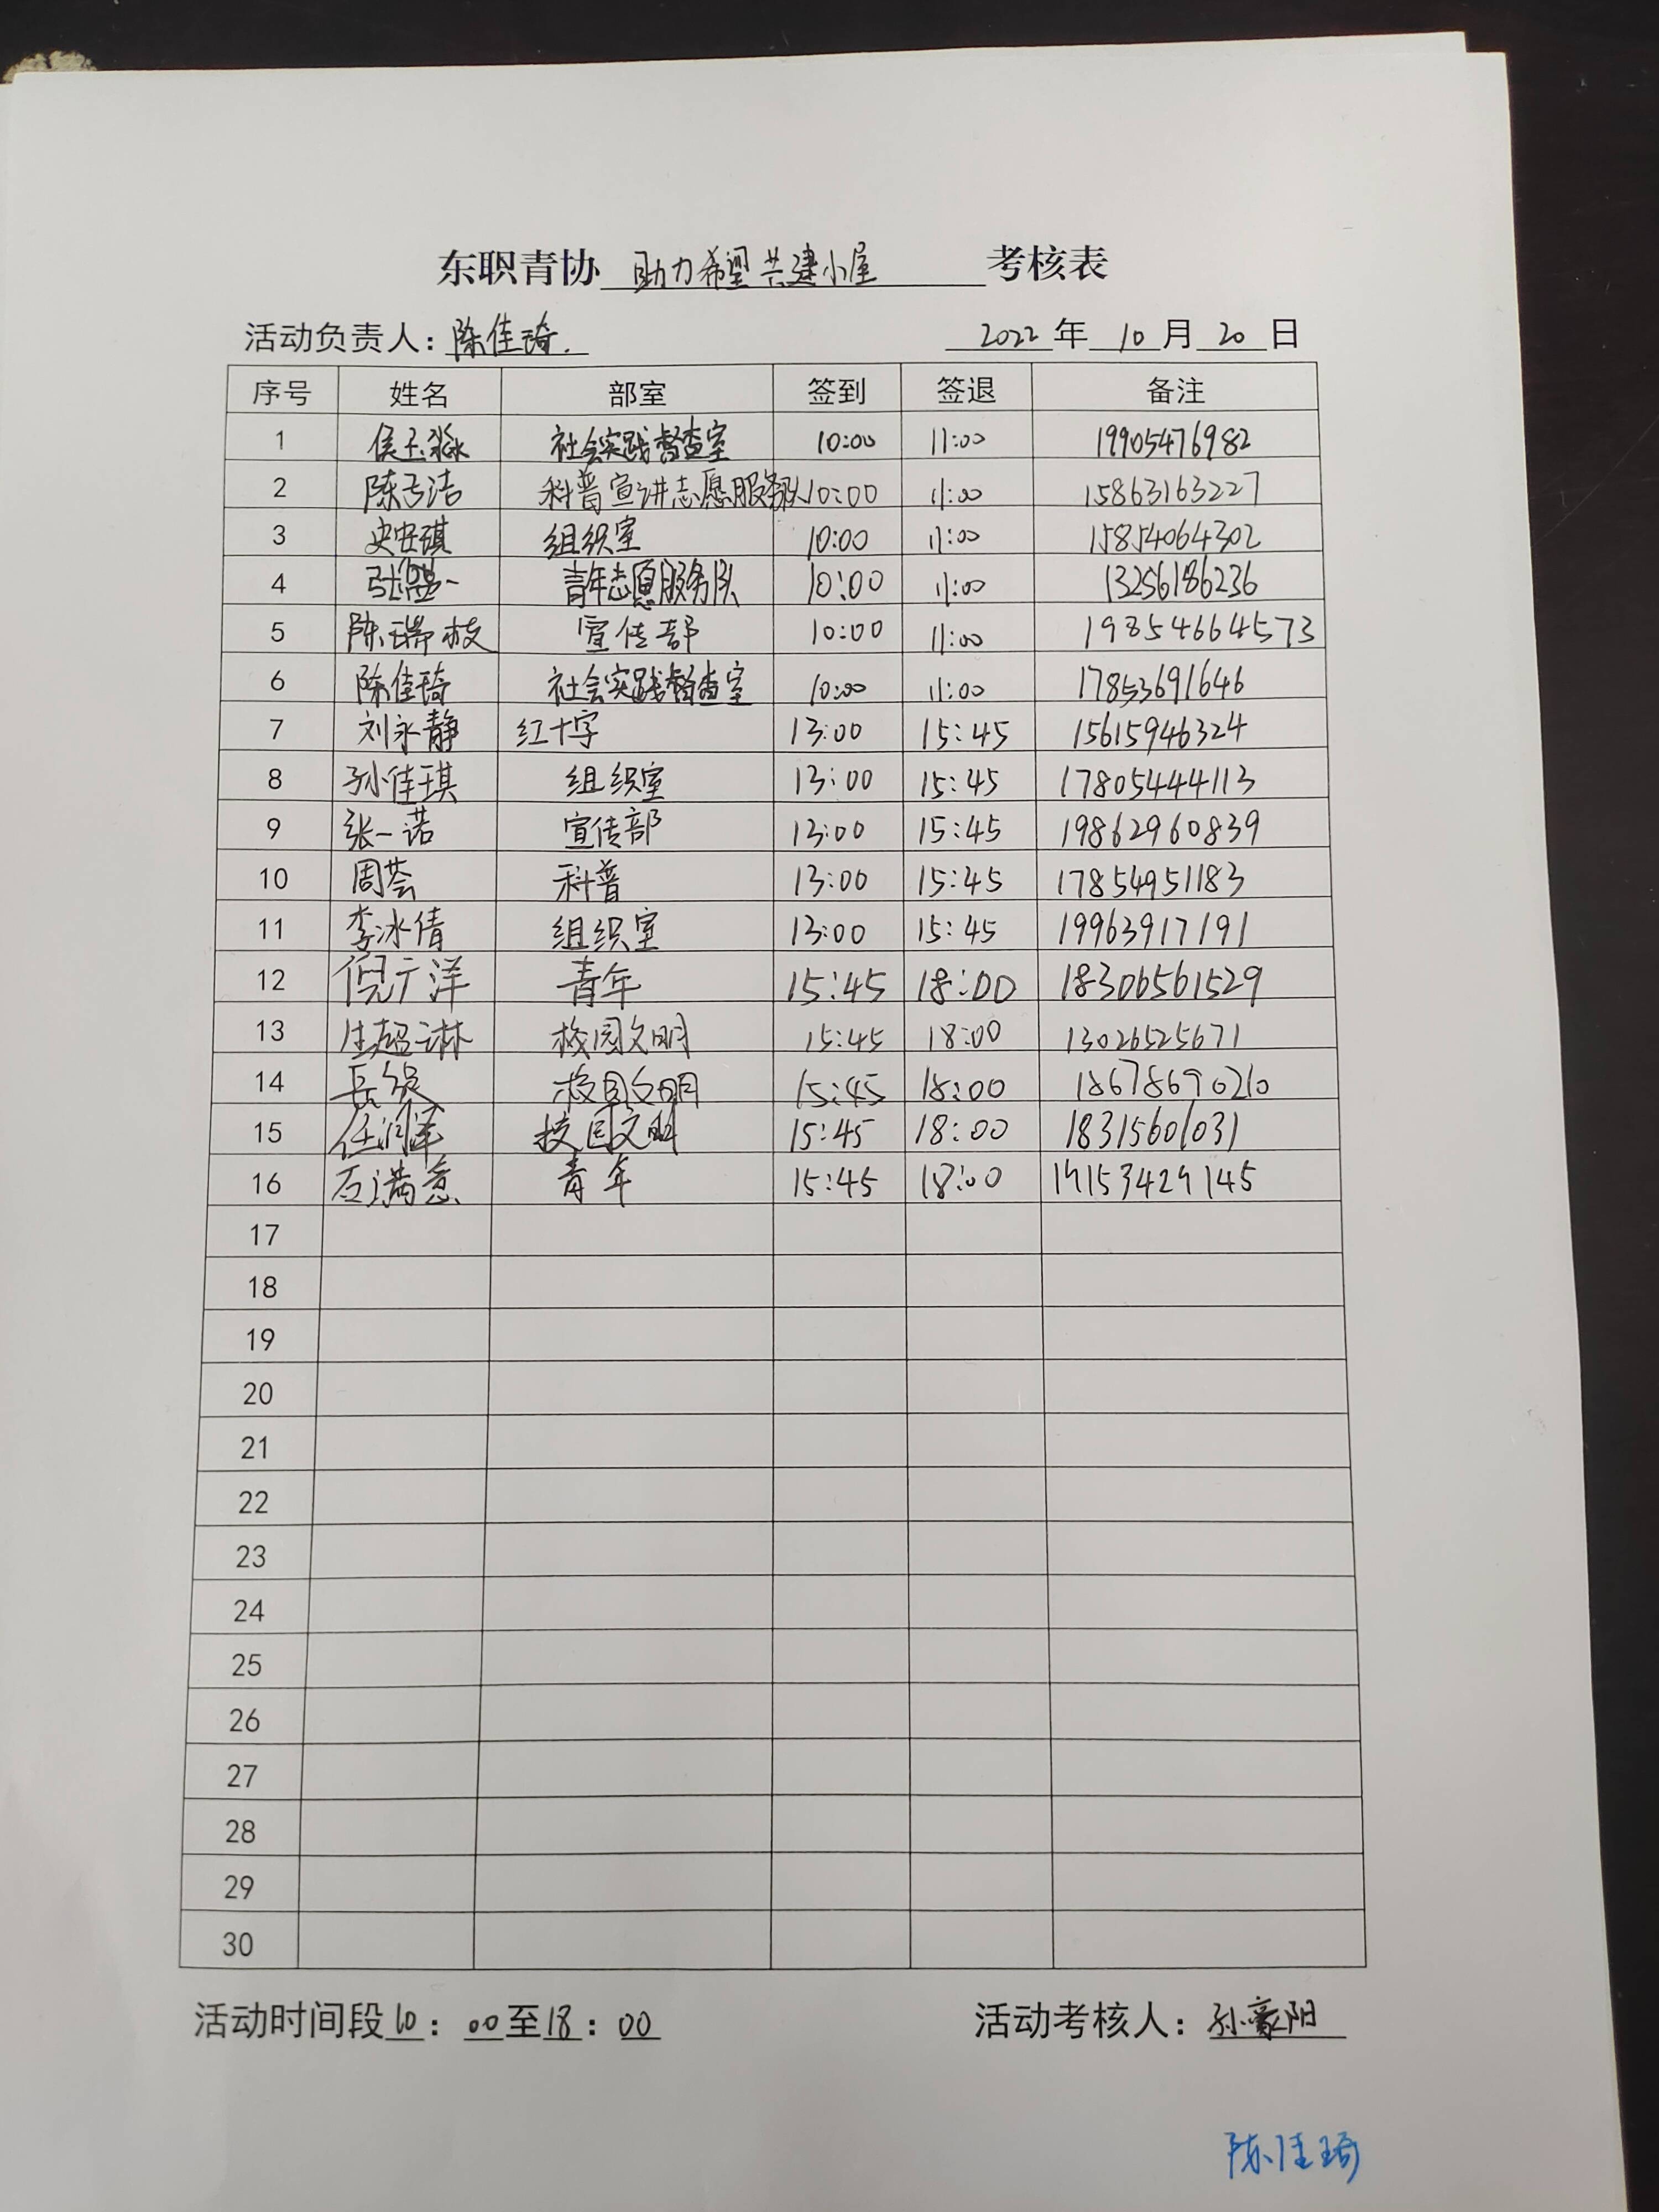 东职青协 助力希望 共建小屋 考核表
活动负责人：陈佳琦. 2022年10月20日
序号 姓名 部室 签到 签退 备注
1 侯玉淼 社会实践督查室 10:00 11:00 19905476982
2 陈弓洁 科普宣讲志愿服务队 10:00 11:00 15863163227
3 史安琪 组织室 10:00 11:00 15854064302
4 青年志愿服务队 10:00 11:00 13256186236
5 陈瑞枝 宣传部 10:00 11:00 19854664573
6 陈佳琦 社会实践督查室 10:00 11:00 17853691646
7 刘永静 红十字 13:00 15:45 15615946324
8 孙佳琪 组织室 13:00 15:45 17805444113
9 张一诺 宣传部 13:00 15:45 19862960839
10 周荟 科普 13:00 15:45 17854951183
11 李冰倩 组织室 13:00 15:45 19963917191
12 倪广洋 青年 15:45 18:00 18306561529
13 校园文明 15:45 18:00 13026525671
14 校园文明 15:45 18:00 18678690210
15 任润泽 校园文明 15:45 18:00 18315601031
16 石满意 青年 15:45 18:00 19153429145
17
18
19
20
21
22
23
24
25
26
27
28
29
30
活动时间段10：00至18：00 活动考核人：孙豪阳
陈佳琦